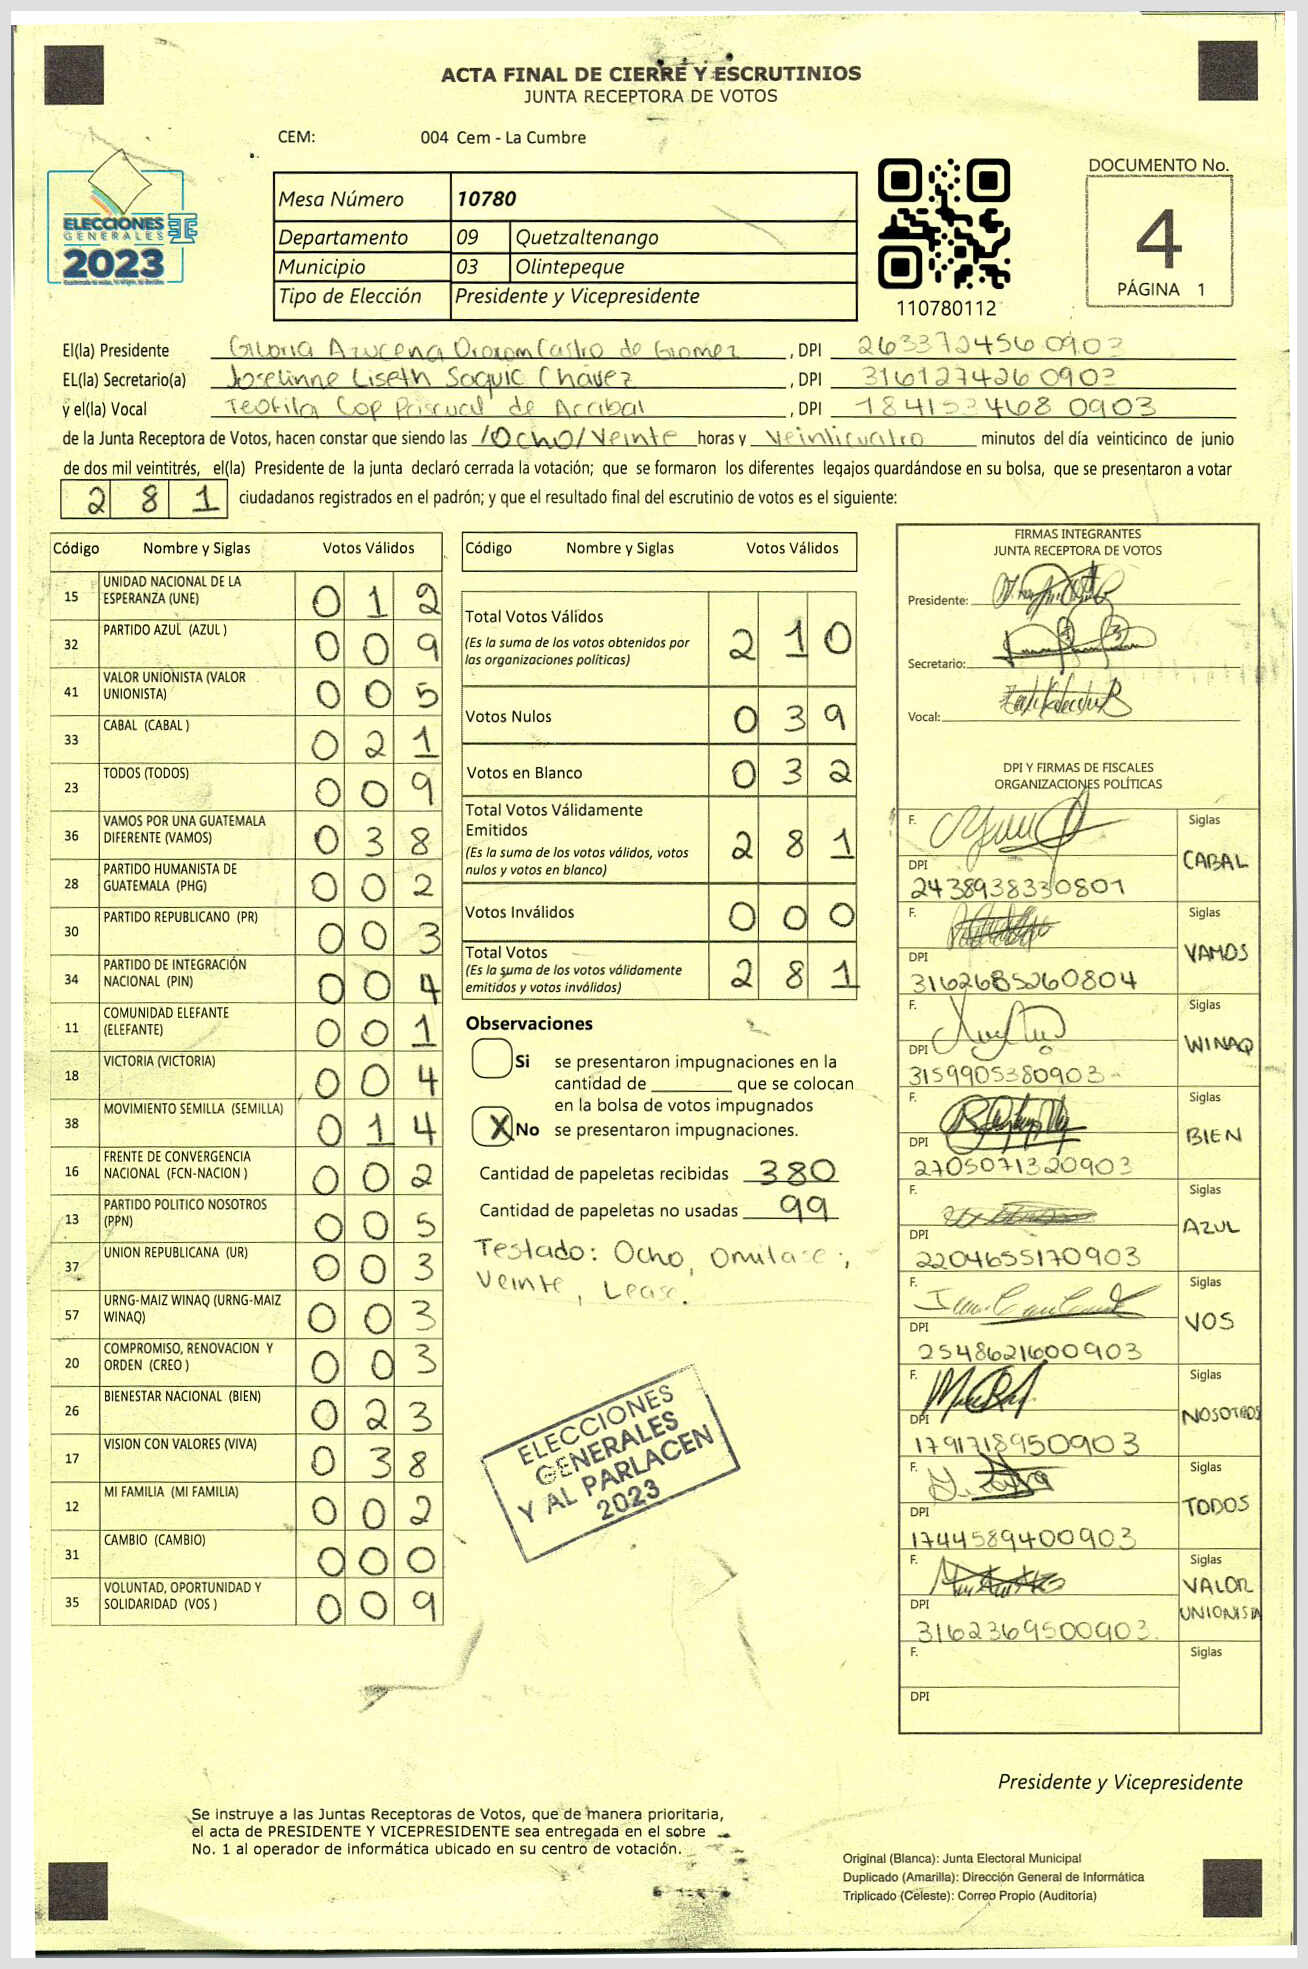 ACTA FINAL DE CIERRE Y ESCRUTINIOS
JUNTA RECEPTORA DE VOTOS
CEM: 004 Cem - La Cumbre
ELECCIONES
GENERALES
2023
Mesa Número 10780
Departamento 09 Quetzaltenango
Municipio 03 Olintepeque
Tipo de Elección Presidente y Vicepresidente
110780112
DOCUMENTO No.
4
PÁGINA 1
El(la) Presidente Gloria Azucena Orozom Castro de Gromez, DPI 2633724560903
EL(la) Secretario(a) Joselinne Liseth Soquic Chávez, DPI 3161274260903
y el(la) Vocal Teofila Cop Pascual de Arribal, DPI 1841534680903
de la Junta Receptora de Votos, hacen constar que siendo las /Ocho/Veinte horas y Veinticuatro minutos del día veinticinco de junio
de dos mil veintitrés, el(la) Presidente de la junta declaró cerrada la votación; que se formaron los diferentes legajos quardándose en su bolsa, que se presentaron a votar
281 ciudadanos registrados en el padrón; y que el resultado final del escrutinio de votos es el siguiente:
Código Nombre y Siglas Votos Válidos
15 UNIDAD NACIONAL DE LA ESPERANZA (UNE) 012
32 PARTIDO AZUL (AZUL ) 009
41 VALOR UNIONISTA (VALOR UNIONISTA) 005
33 CABAL (CABAL ) 021
23 TODOS (TODOS) 009
36 VAMOS POR UNA GUATEMALA DIFERENTE (VAMOS) 038
28 PARTIDO HUMANISTA DE GUATEMALA (PHG) 002
30 PARTIDO REPUBLICANO (PR) 003
34 PARTIDO DE INTEGRACIÓN NACIONAL (PIN) 004
11 COMUNIDAD ELEFANTE (ELEFANTE) 001
18 VICTORIA (VICTORIA) 004
38 MOVIMIENTO SEMILLA (SEMILLA) 014
16 FRENTE DE CONVERGENCIA NACIONAL (FCN-NACION ) 002
13 PARTIDO POLITICO NOSOTROS (PPN) 005
37 UNION REPUBLICANA (UR) 003
57 URNG-MAIZ WINAQ (URNG-MAIZ WINAQ) 003
20 COMPROMISO, RENOVACION Y ORDEN (CREO ) 003
26 BIENESTAR NACIONAL (BIEN) 023
17 VISION CON VALORES (VIVA) 038
12 MI FAMILIA (MI FAMILIA) 002
31 CAMBIO (CAMBIO) 000
35 VOLUNTAD, OPORTUNIDAD Y SOLIDARIDAD (VOS ) 009
Código Nombre y Siglas Votos Válidos
Total Votos Válidos 210
(Es la suma de los votos obtenidos por
las organizaciones políticas)
Votos Nulos 039
Votos en Blanco 032
Total Votos Válidamente
Emitidos 281
(Es la suma de los votos válidos, votos
nulos y votos en blanco)
Votos Inválidos 000
Total Votos 281
(Es la suma de los votos válidamente
emitidos y votos inválidos)
Observaciones
Si se presentaron impugnaciones en la
cantidad de ________ que se colocan
en la bolsa de votos impugnados
X No se presentaron impugnaciones.
Cantidad de papeletas recibidas 380
Cantidad de papeletas no usadas 99
Testado: Ocho, Omitase;
Veinte, Lease.
ELECCIONES
GENERALES
Y AL PARLACEN
2023
FIRMAS INTEGRANTES
JUNTA RECEPTORA DE VOTOS
Presidente:
Secretario:
Vocal:
DPI Y FIRMAS DE FISCALES
ORGANIZACIONES POLÍTICAS
F. Siglas
CABAL
DPI
2438938330801
F. Siglas
VAMOS
DPI
3162685260804
F. Siglas
WINAQ
DPI
3159905380903
F. Siglas
BIEN
DPI
2705071320903
F. Siglas
AZUL
DPI
2204655170903
F. Siglas
VOS
DPI
2548621600903
F. Siglas
NOSOTROS
DPI
1791718950903
F. Siglas
TODOS
DPI
1744589400903
F. Siglas
VALOR
UNIONISTA
DPI
3162369500903
F. Siglas
DPI
Presidente y Vicepresidente
Se instruye a las Juntas Receptoras de Votos, que de manera prioritaria,
el acta de PRESIDENTE Y VICEPRESIDENTE sea entregada en el sobre
No. 1 al operador de informática ubicado en su centro de votación.
Original (Blanca): Junta Electoral Municipal
Duplicado (Amarilla): Dirección General de Informática
Triplicado (Celeste): Correo Propio (Auditoría)